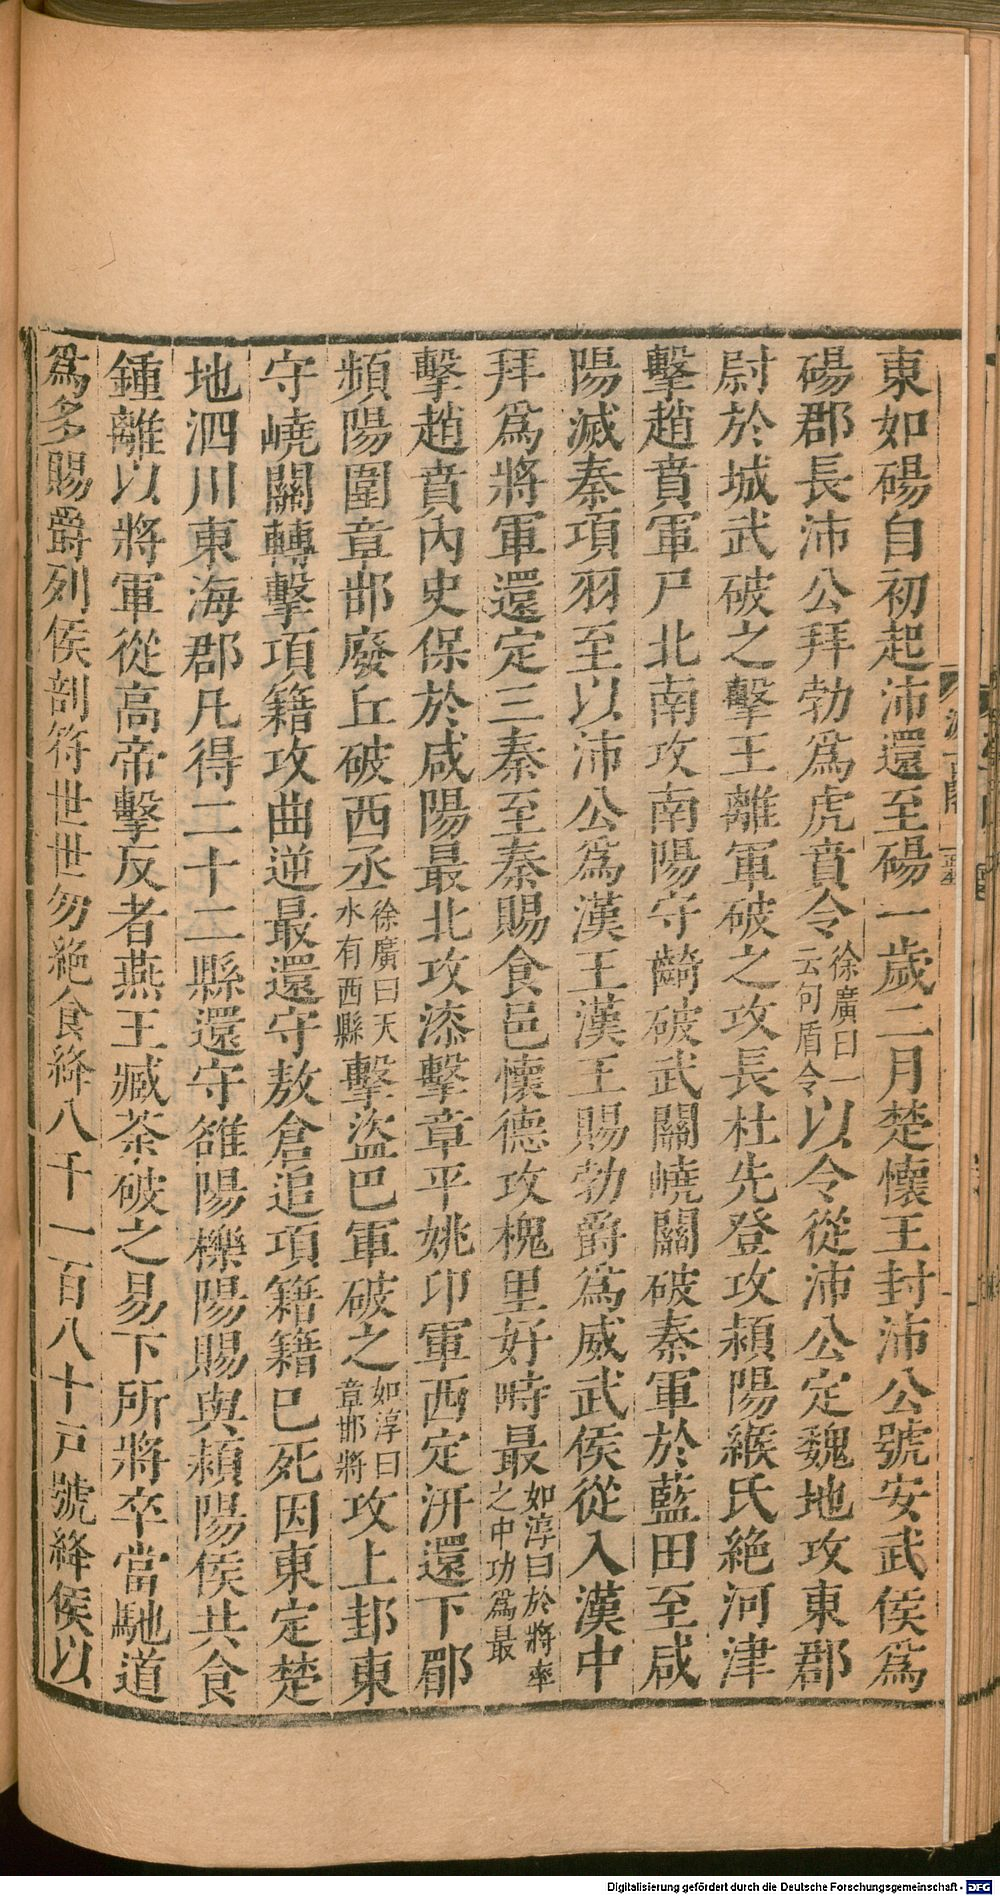 東如碭自初起沛還至碭一歲二月楚懷王封沛公號安武侯爲
碭郡長沛公拜勃爲虎賁令徐廣曰一云句盾令以令從沛公定魏地攻東郡
尉於城武破之擊王離軍破之攻長杜先登攻潁陽緱氏絶河津
擊趙賁軍尸北南攻南陽守齮破武關嶢關破秦軍於藍田至咸
陽滅秦項羽至以沛公爲漢王漢王賜勃爵爲威武侯從入漢中
拜爲將軍還定三秦至秦賜食邑懷德攻槐里好畤最如淳曰於將率之中功爲最
擊趙賁內史保於咸陽最北攻漆擊章平姚卬軍西定汧還下郿
頻陽圍章邯廢丘破西丞徐廣曰天水有西縣擊盜巴軍破之如淳曰章邯將攻上邽東
守嶢關轉擊項籍攻曲逆最還守敖倉追項籍籍已死因東定楚
地泗川東海郡凡得二十二縣還守雒陽櫟陽賜與潁陽侯共食
鍾離以將軍從高帝擊反者燕王臧荼破之易下所將卒當馳道
爲多賜爵列侯剖符世世勿絶食絳八千一百八十戸號絳侯以
Digitalisierung gefördert durch die Deutsche Forschungsgemeinschaft - DFG